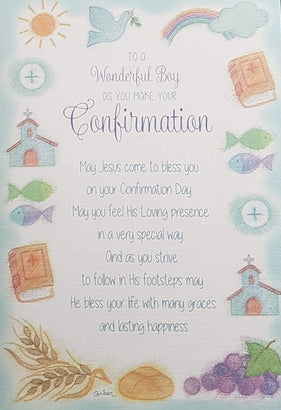 TO A
Wonderful Boy
AS YOU MAKE YOUR
Confirmation
May Jesus come to bless you
on your Confirmation Day
May you feel His Loving presence
in a very special way
And as you strive
to follow in His footsteps may
He bless your life with many graces
and lasting happiness